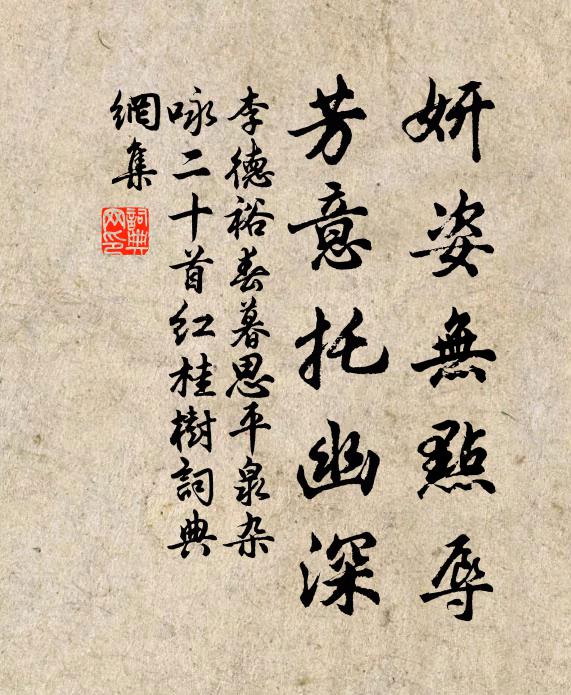 妍姿無點辱
芳意托幽深
李德裕春暮思平泉杂
咏二十首红桂樹詞典
網集
詞典
网印